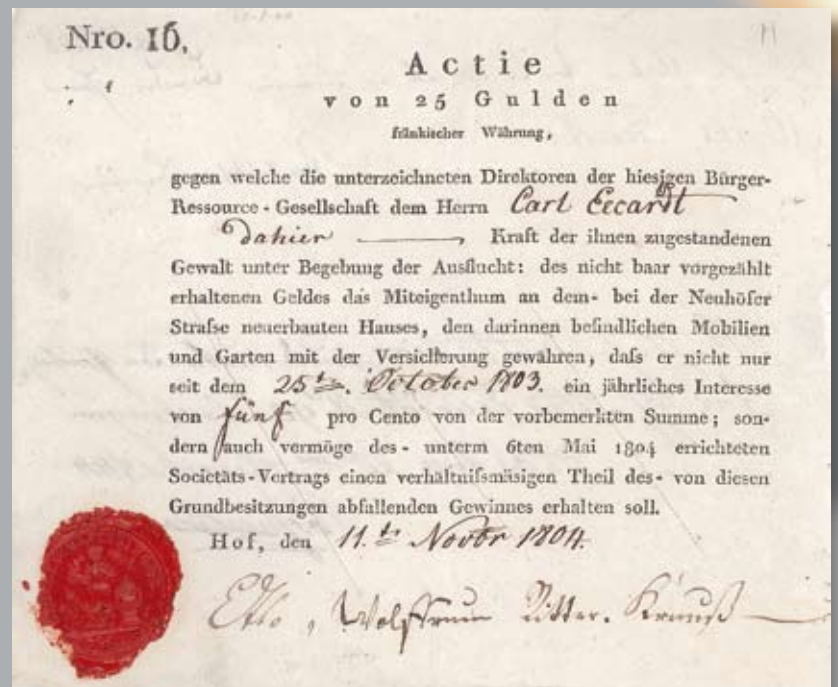 Nro. 16,
Actie
von 25 Gulden
fränkischer Währung,
gegen welche die unterzeichneten Direktoren der hiesigen Bürger-
Ressource-Gesellschaft dem Herrn Carl Eccardt
dahier Kraft der ihnen zugestandenen
Gewalt unter Begebung der Ausflucht: des nicht baar vorgezählt
erhaltenen Geldes das Miteigenthum an dem- bei der Neuhöfer
Strafse neuerbauten Hauses, den darinnen befindlichen Mobilien
und Garten mit der Versicherung gewähren, dafs er nicht nur
seit dem 25t. October 1803. ein jährliches Interesse
von fünf pro Cento von der vorbemerkten Summe; son-
dern auch vermöge des- unterm 6ten Mai 1804 errichteten
Societäts-Vertrags einen verhältnifsmäsigen Theil des- von diesen
Grundbesitzungen abfallenden Gewinnes erhalten soll.
Hof, den 11.t Novbr 1804.
Wolffrum Ritter. Krauß